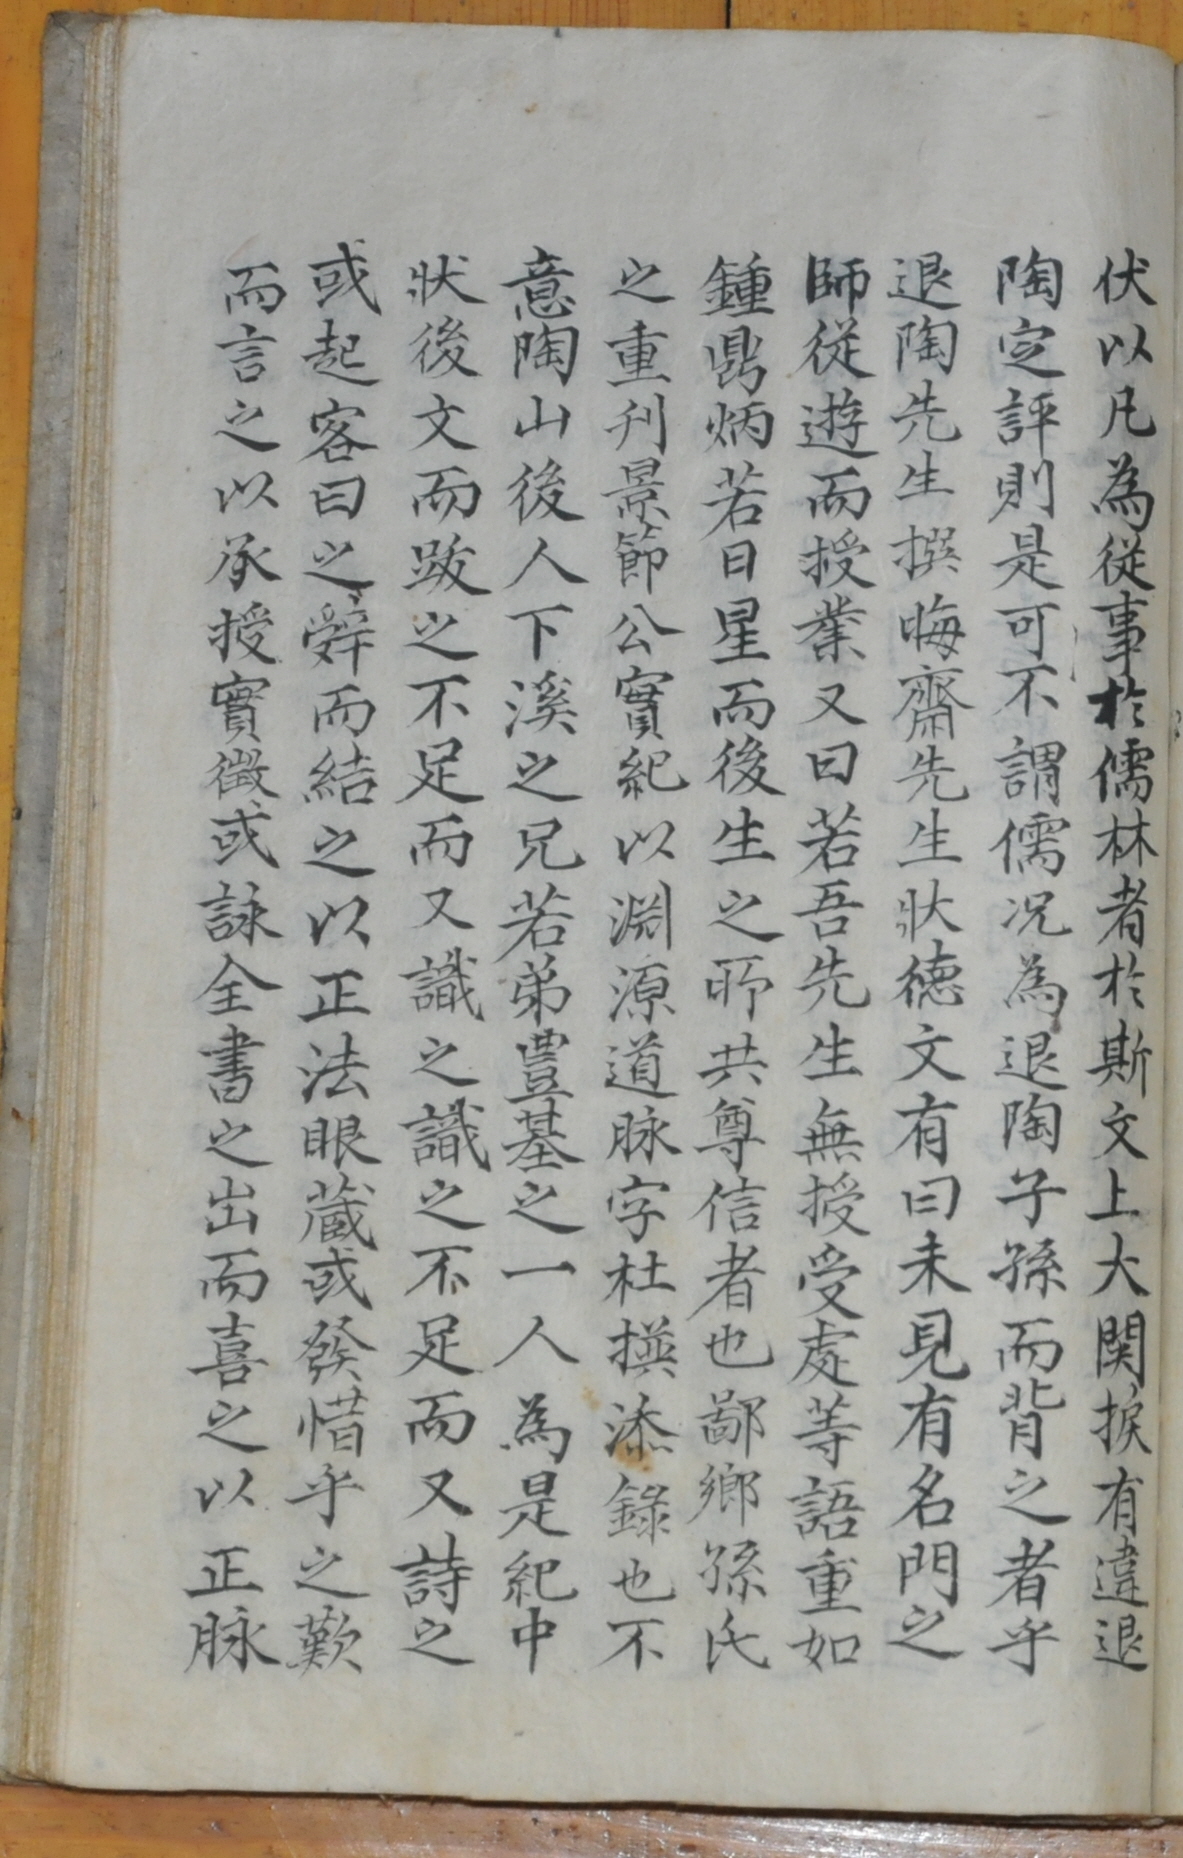 伏以凡為從事於儒林者於斯文上大関捩有違退
陶定評則是可不謂儒况為退陶子孫而背之者乎
退陶先生撰晦齋先生狀德文有曰未見有名門之
師從遊而授業又曰若吾先生無授受處等語重如
鍾鼎炳若日星而後生之所共尊信者也鄙鄉孫氏
之重刊景節公實紀以淵源道脉字杜撰添錄也不
意陶山後人下溪之兄若弟豊基之一人為是紀中
狀後文而跋之不足而又識之識之不足而又詩之
或起客曰之辭而結之以正法眼藏或發惜乎之歎
而言之以承授實徵或詠全書之出而喜之以正脉